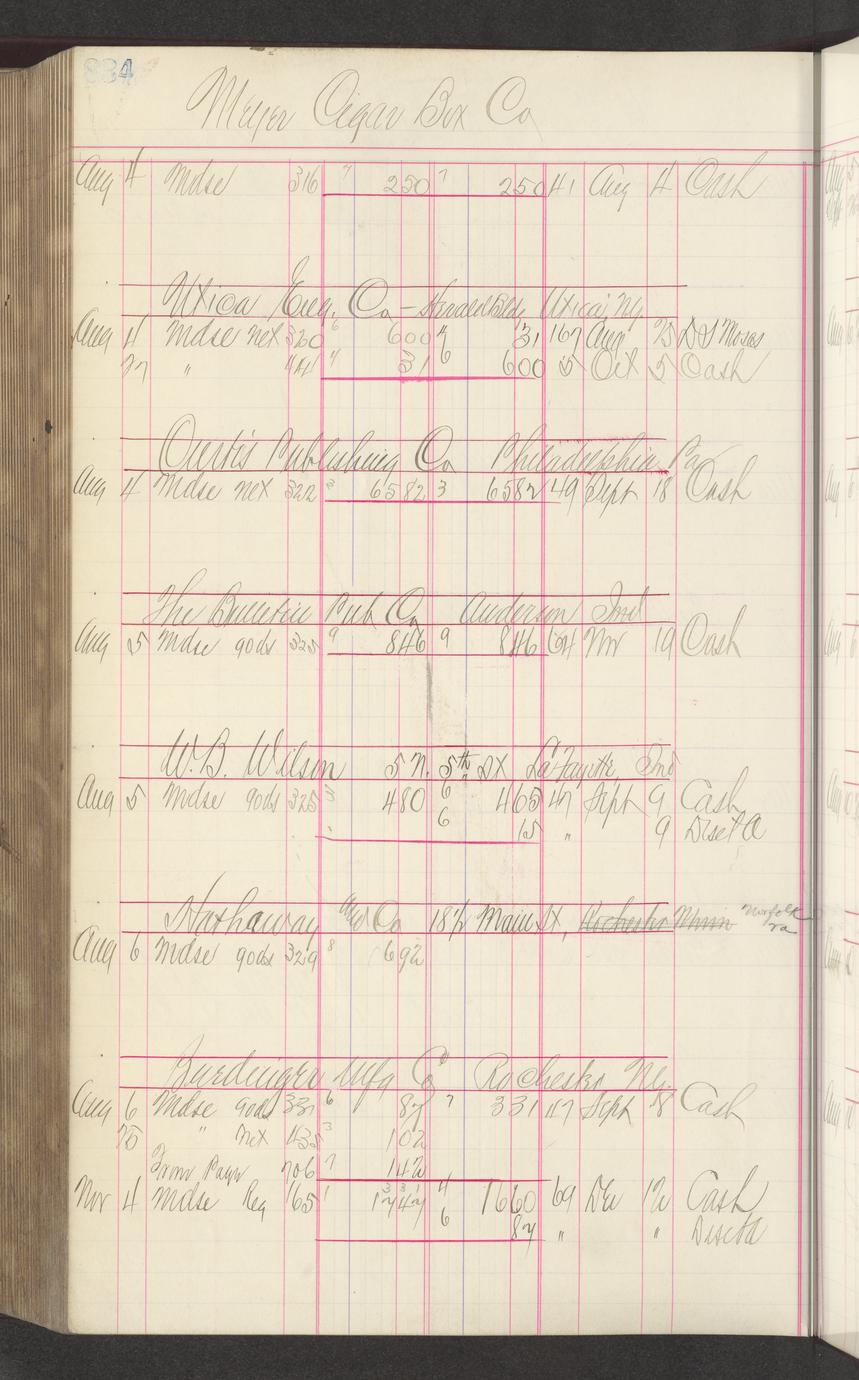 884
Meyer Cigar Box Co
Aug 4 Mdse 316 7 250 7 250 41 Aug 4 Cash
Utica Eng. Co - Herald Bldg Utica, Ny
Aug 4 Mdse net 320 6 600 4 31 167 Aug 25 D S Moses
27 " 414 4 31 6 600 5 Oct 5 Cash
Curtis Publishing Co Philadelphia Pa
Aug 4 Mdse net 322 3 6582 3 6582 49 Sept 18 Cash
The Bulletin Pub Co Anderson Ind
Aug 5 Mdse gods 325 9 846 9 846 64 Nov 19 Cash
W.B. Wilson 5 N. 5th St LaFayette, Ind
Aug 5 Mdse gods 325 3 480 6 465 47 Sept 9 Cash
6 15 " 9 Disct a
Hathaway Co 18 1/2 Main St, Rochester Minn Norfolk va
Aug 6 Mdse gods 329 8 692
Mfg Co Rochester Ny.
Aug 6 Mdse gods 331 6 87 7 331 47 Sept 8 Cash
25 " net 435 3 102
From Page 706 7 142
Nov 4 Mdse Reg 165 1 1747 4 1660 69 Dec 12 Cash
6 87 " " Disct a